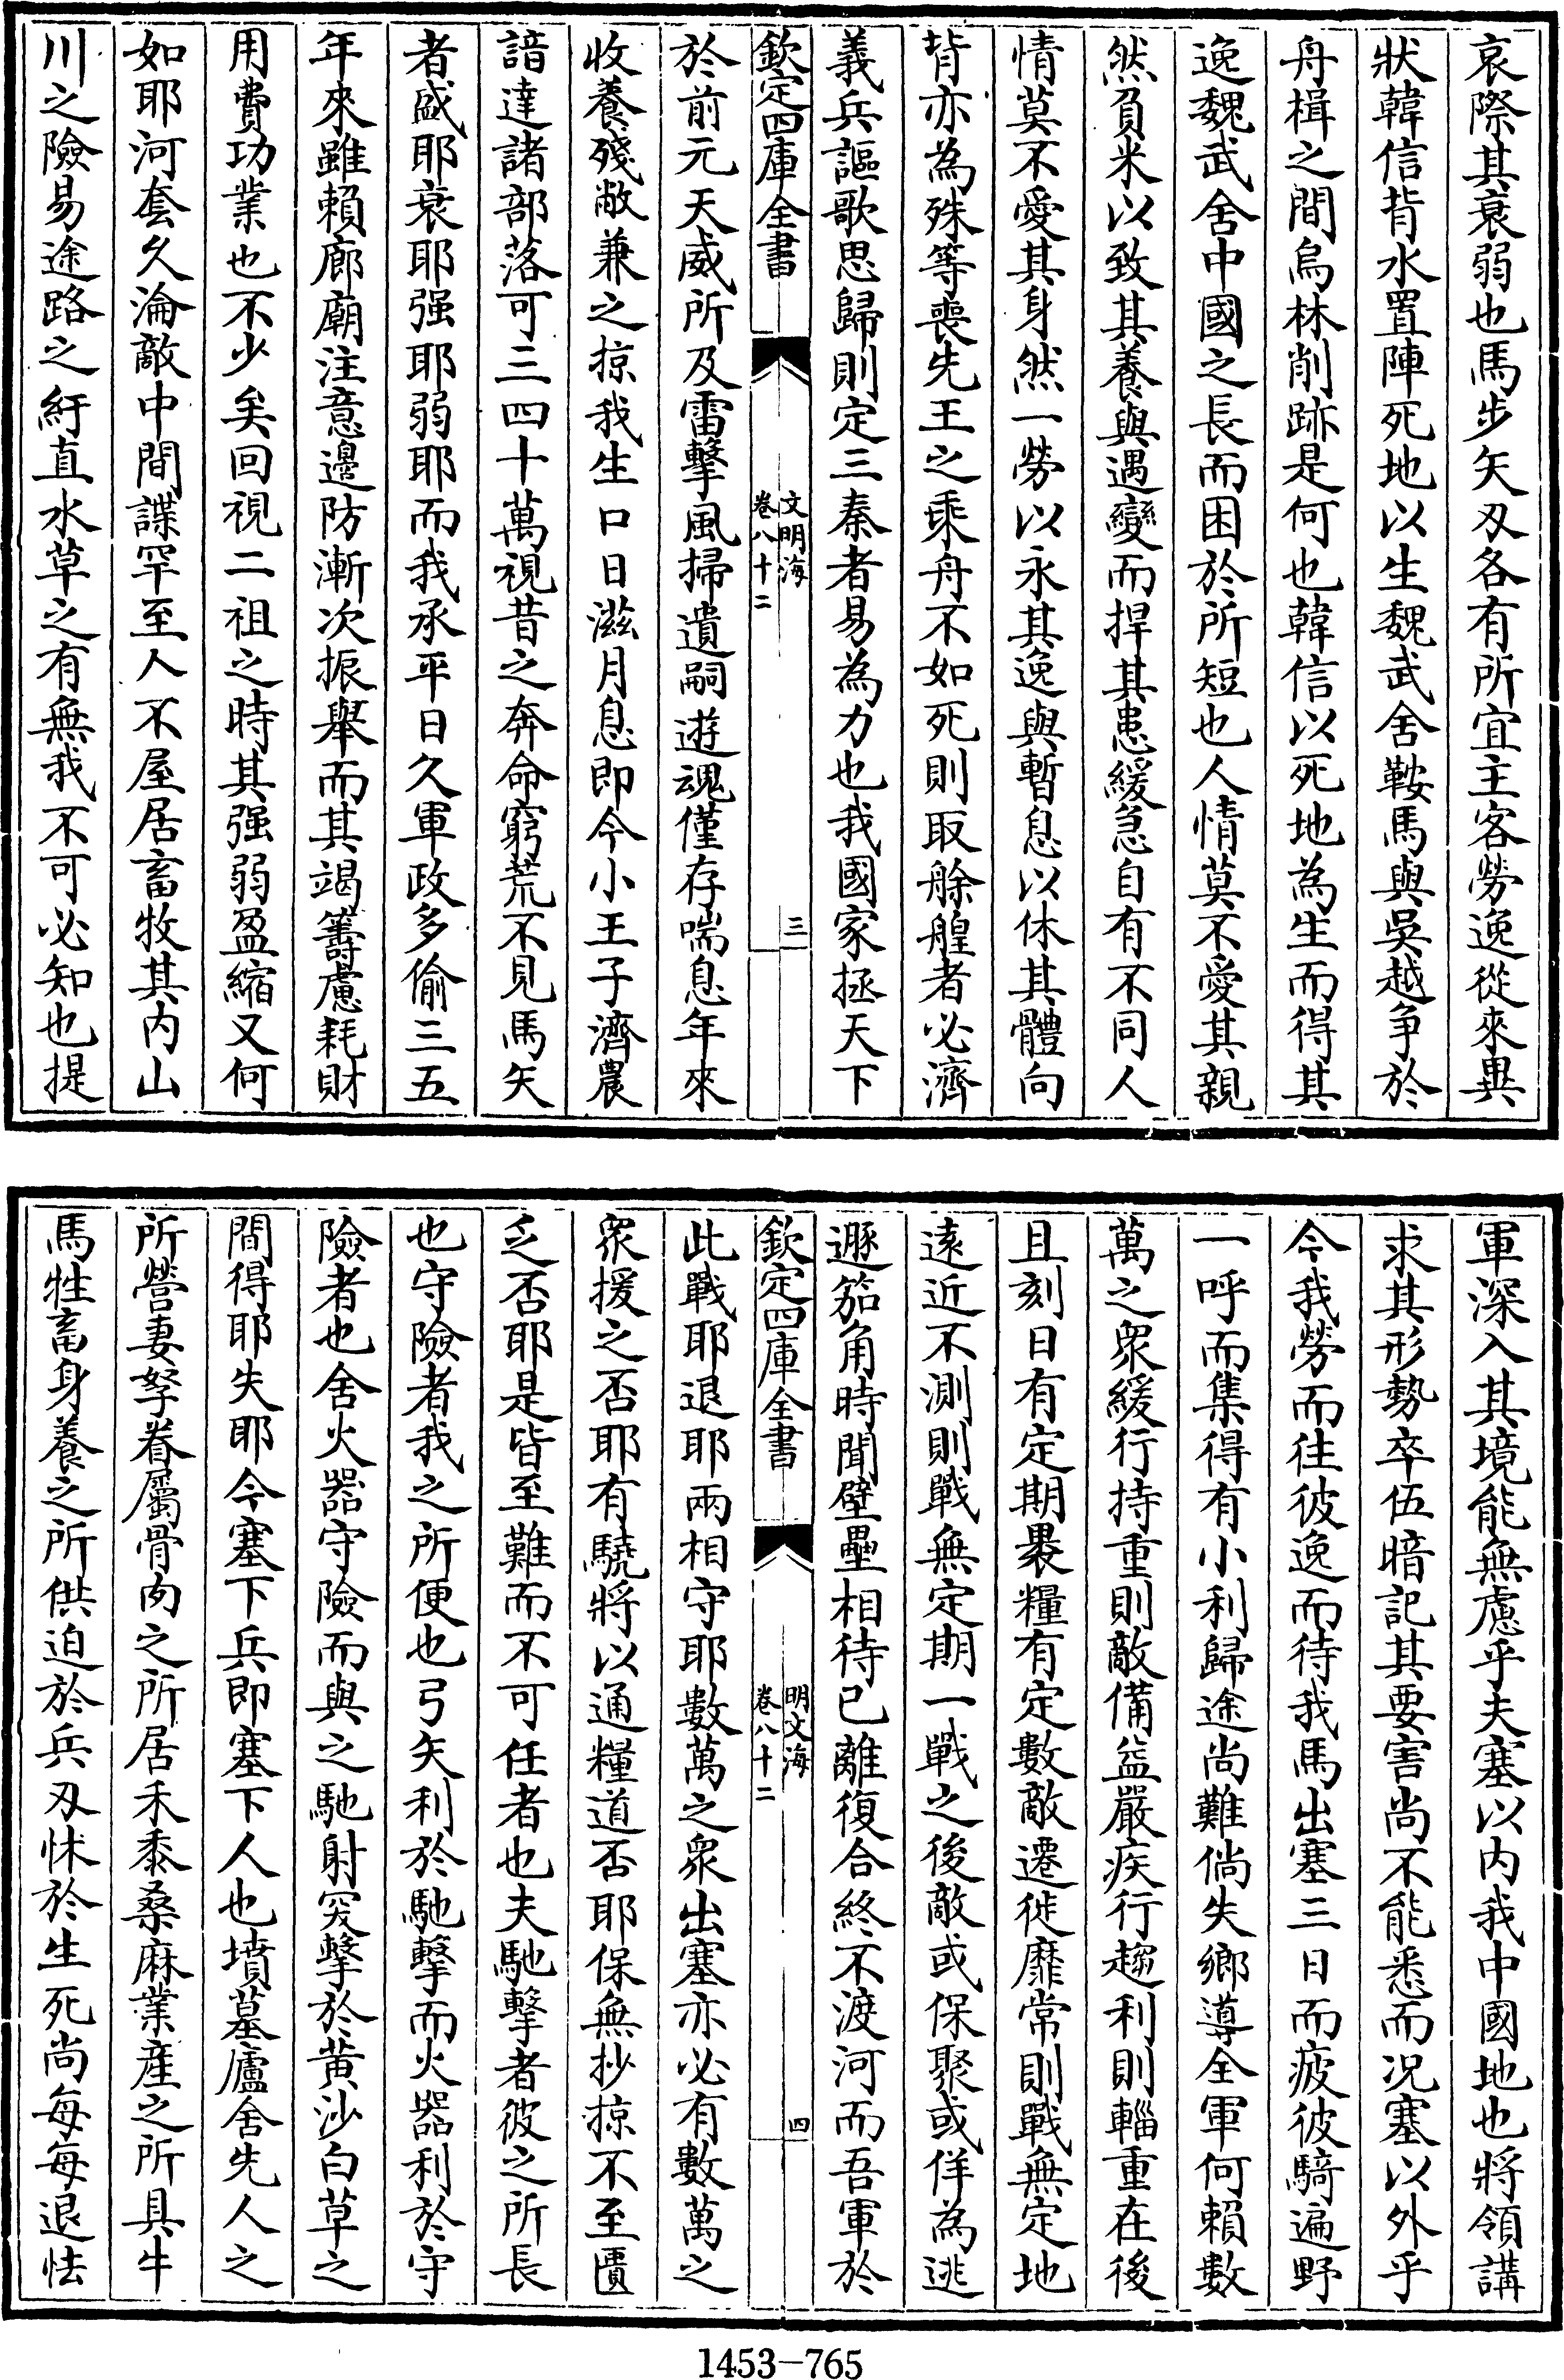 哀際其衰弱也馬步矢刄各有所宜主客勞逸從來異
狀韓信背水置陣死地以生魏武舍鞍馬與吳越爭於
舟楫之間烏林削跡是何也韓信以死地為生而得其
逸魏武舍中國之長而困於所短也人情莫不愛其親
然負米以致其養與遇變而捍其患緩急自有不同人
情莫不愛其身然一勞以永其逸與暫息以休其體向
背亦為殊等喪先王之乘舟不如死則取艅艎者必濟
義兵謳歌思歸則定三秦者易為力也我國家拯天下
欽定四庫全書
文明海
卷八十二
三
於前元天威所及雷擊風掃遺嗣遊魂僅存喘息年來
收養殘敝兼之掠我生口日滋月息即今小王子濟農
諳達諸部落可三四十萬視昔之奔命窮荒不見馬矢
者盛耶衰耶强耶弱耶而我承平日久軍政多偷三五
年來雖賴廊廟注意邊防漸次振舉而其竭籌慮耗財
用費功業也不少矣回視二祖之時其强弱盈縮又何
如耶河套久淪敵中間諜罕至人不屋居畜牧其內山
川之險易途路之紆直水草之有無我不可必知也提
軍深入其境能無慮乎夫塞以內我中國地也將領講
求其形勢卒伍暗記其要害尚不能悉而况塞以外乎
今我勞而往彼逸而待我馬出塞三日而疲彼騎遍野
一呼而集得有小利歸途尚難倘失鄉導全軍何賴數
萬之衆緩行持重則敵備益嚴疾行趨利則輜重在後
且刻日有定期裹糧有定數敵遷徙靡常則戰無定地
遠近不測則戰無定期一戰之後敵或保聚或佯為逃
遯笳角時聞壁壘相待已離復合終不渡河而吾軍於
欽定四庫全書
明文海
卷八十二
四
此戰耶退耶兩相守耶數萬之衆出塞亦必有數萬之
衆援之否耶有驍將以通糧道否耶保無抄掠不至匱
乏否耶是皆至難而不可任者也夫馳擊者彼之所長
也守險者我之所便也弓矢利於馳擊而火器利於守
險者也舍火器守險而與之馳射突擊於黄沙白草之
間得耶失耶今塞下兵即塞下人也墳墓廬舍先人之
所營妻孥眷屬骨肉之所居禾黍桑麻業產之所具牛
馬牲畜身養之所供迫於兵刄怵於生死尚每每退怯
1453-765